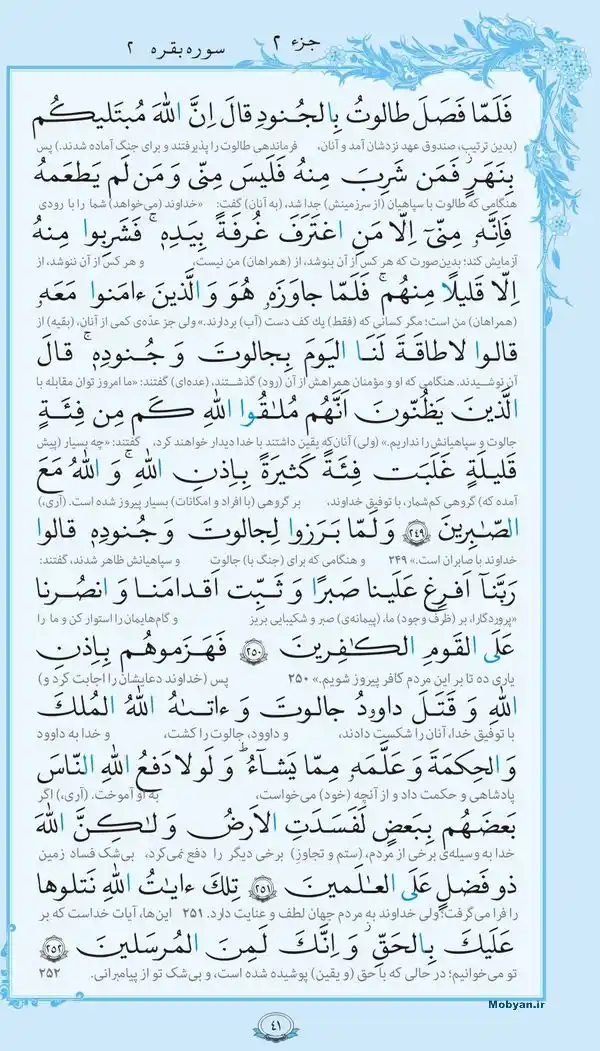 جزء ۲
سوره بقره ۲
فَلَمّا فَصَلَ طالوتُ بِالجُنودِ قالَ اِنَّ اللهَ مُبتَليكُم
(بدین ترتیب، صندوق عهد نزدشان آمد و آنان، فرماندهی طالوت را پذیرفتند و برای جنگ آماده شدند.) پس
بِنَهَرٍ فَمَن شَرِبَ مِنهُ فَلَيسَ مِنّى وَ مَن لَم يَطعَمهُ
هنگامی که طالوت با سپاهیان (از سرزمینش) جدا شد، (به آنان) گفت: «خداوند (می‌خواهد) شما را با رودی
فَاِنَّهٗ مِنّىٓ اِلّا مَنِ اغتَرَفَ غُرفَةً بِيَدِهٖۚ فَشَرِبوا مِنهُ
آزمایش کند؛ بدین‌صورت که هر کس از آن بنوشد، از (همراهان) من نیست، و هر کس از آن ننوشد، از
اِلّا قَليلًا مِنهُمۚ فَلَمّا جاوَزَهٗ هُوَ وَ الَّذينَ ءامَنوا مَعَهٗ
(همراهان) من است؛ مگر کسانی که (فقط) یک کف دست (آب) بردارند.» ولی جز عدّه‌ی کمی از آنان، (بقیه) از
قالوا لاطاقَةَ لَنَا اليَومَ بِجالوتَ وَ جُنودِهٖۚ قالَ
آن نوشیدند. هنگامی که او و مؤمنان همراهش از آن (رود) گذشتند، (عده‌ای) گفتند: «ما امروز توان مقابله با
الَّذينَ يَظُنّونَ اَنَّهُم مُلٰقُوا اللهِ كَم مِن فِئَةٍ
جالوت و سپاهیانش را نداریم.» (ولی) آنان‌که یقین داشتند با خدا دیدار خواهند کرد، گفتند: «چه بسیار (پیش
قَليلَةٍ غَلَبَت فِئَةً كَثيرَةً بِاِذنِ اللهِۚ وَ اللهُ مَعَ
آمده که) گروهی کم‌شمار، با توفیق خداوند، بر گروهی (با افراد و امکانات) بسیار پیروز شده است. (آری،)
الصّٰبِرينَ ٢٤٩ وَ لَمّا بَرَزوا لِجالوتَ وَ جُنودِهٖ قالوا
خداوند با صابران است.» ۲۴۹ و هنگامی که برای (جنگ با) جالوت و سپاهیانش ظاهر شدند، گفتند:
رَبَّنآ اَفرِغ عَلَينا صَبرًا وَ ثَبِّت اَقدامَنا وَ انصُرنا
«پروردگارا، بر (ظرف وجود) ما، (پیمانه‌ی) صبر و شکیبایی بریز و گام‌هایمان را استوار کن و ما را
عَلَى القَومِ الكٰفِرينَ ٢٥٠ فَهَزَموهُم بِاِذنِ
یاری ده تا بر این مردم کافر پیروز شویم.» ۲۵۰ پس (خداوند دعایشان را اجابت کرد و)
اللهِ وَ قَتَلَ داوۥدُ جالوتَ وَ ءاتىٰهُ اللهُ المُلكَ
با توفیق خدا، آنان را شکست دادند، و داوود، جالوت را کشت، و خدا به داوود
وَ الحِكمَةَ وَ عَلَّمَهٗ مِمّا يَشآءُۗ وَ لَولا دَفعُ اللهِ النّاسَ
پادشاهی و حکمت داد و از آنچه (خود) می‌خواست، به او آموخت. (آری،) اگر
بَعضَهُم بِبَعضٍ لَفَسَدَتِ الاَرضُ وَ لٰكِنَّ اللهَ
خدا به وسیله‌ی برخی از مردم، (ستم و تجاوز) برخی دیگر را دفع نمی‌کرد، بی‌شک فساد زمین
ذو فَضلٍ عَلَى العٰلَمينَ ٢٥١ تِلكَ ءايٰتُ اللهِ نَتلوها
را فرا می‌گرفت؛ ولی خداوند به مردم جهان لطف و عنایت دارد. ۲۵۱ این‌ها، آیات خداست که بر
عَلَيكَ بِالحَقِّۚ وَ اِنَّكَ لَمِنَ المُرسَلينَ ٢٥٢
تو می‌خوانیم؛ در حالی که با حق (و یقین) پوشیده شده است، و بی‌شک تو از پیامبرانی. ۲۵۲
Mobyan.ir
٤١